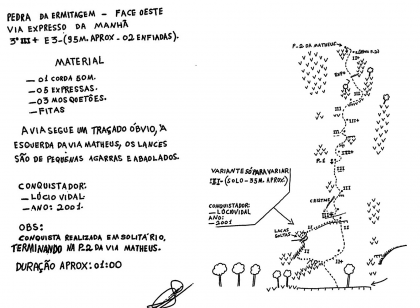 PEDRA DA ERMITAGEM - FACE OESTE
VIA EXPRESSO DA MANHÃ
3º III+ E3 - (95M. APROX - 02 ENFIADAS).
MATERIAL
- 01 CORDA 50M.
- 05 EXPRESSAS.
- 03 MOSQUETÕES.
- FITAS
A VIA SEGUE UM TRAÇADO ÓBVIO, À
ESQUERDA DA VIA MATHEUS, OS LANCES
SÃO DE PEQUENAS AGARRAS E ABAOLADOS.
CONQUISTADOR:
- LÚCIO VIDAL
- ANO: 2001.
OBS:
CONQUISTA REALIZADA EM SOLITÁRIO,
TERMINANDO NA P.2 DA VIA MATHEUS.
DURAÇÃO APROX: 01:00
P.2 DA MATHEUS
II+
III
III+
P.1
III
CRISTAL
III
VARIANTE SÓ PARA VARIAR
III - (SOLO - 35M. APROX.)
CONQUISTADOR:
- LÚCIO VIDAL
- ANO:
- 2001
LACAS
SOLTAS
II
II